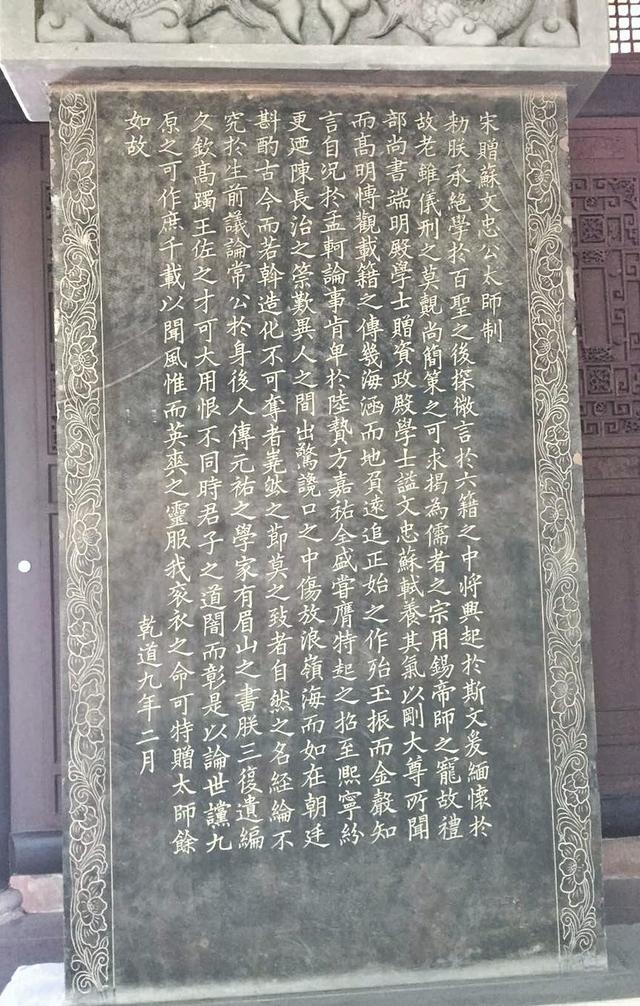 宋贈蘇文忠公太師制
勑朕承絕學於百聖之後探微言於六籍之中将興起於斯文爰緬懷於
故老雖儀刑之莫覿尚簡策之可求揭為儒者之宗用錫帝師之寵故禮
部尚書端明殿學士贈資政殿學士謚文忠蘇軾養其氣以剛大尊所聞
而髙明博觀載籍之傳幾海涵而地負遠追正始之作殆玉振而金聲知
言自况於孟軻論事肯卑於陸贄方嘉祐全盛甞膺特起之招至熙寧紛
更廼陳長治之策歎異人之間出驚讒口之中傷放浪嶺海而如在朝廷
斟酌古今而若斡造化不可奪者嶤然之節莫之致者自然之名經綸不
究於生前議論常公於身後人傳元祐之學家有眉山之書朕三復遺編
久欽髙躅王佐之才可大用恨不同時君子之道闇而彰是以論世讜九
原之可作庶千載以聞風惟而英爽之靈服我衮衣之命可特贈太師餘
如故
乾道九年二月